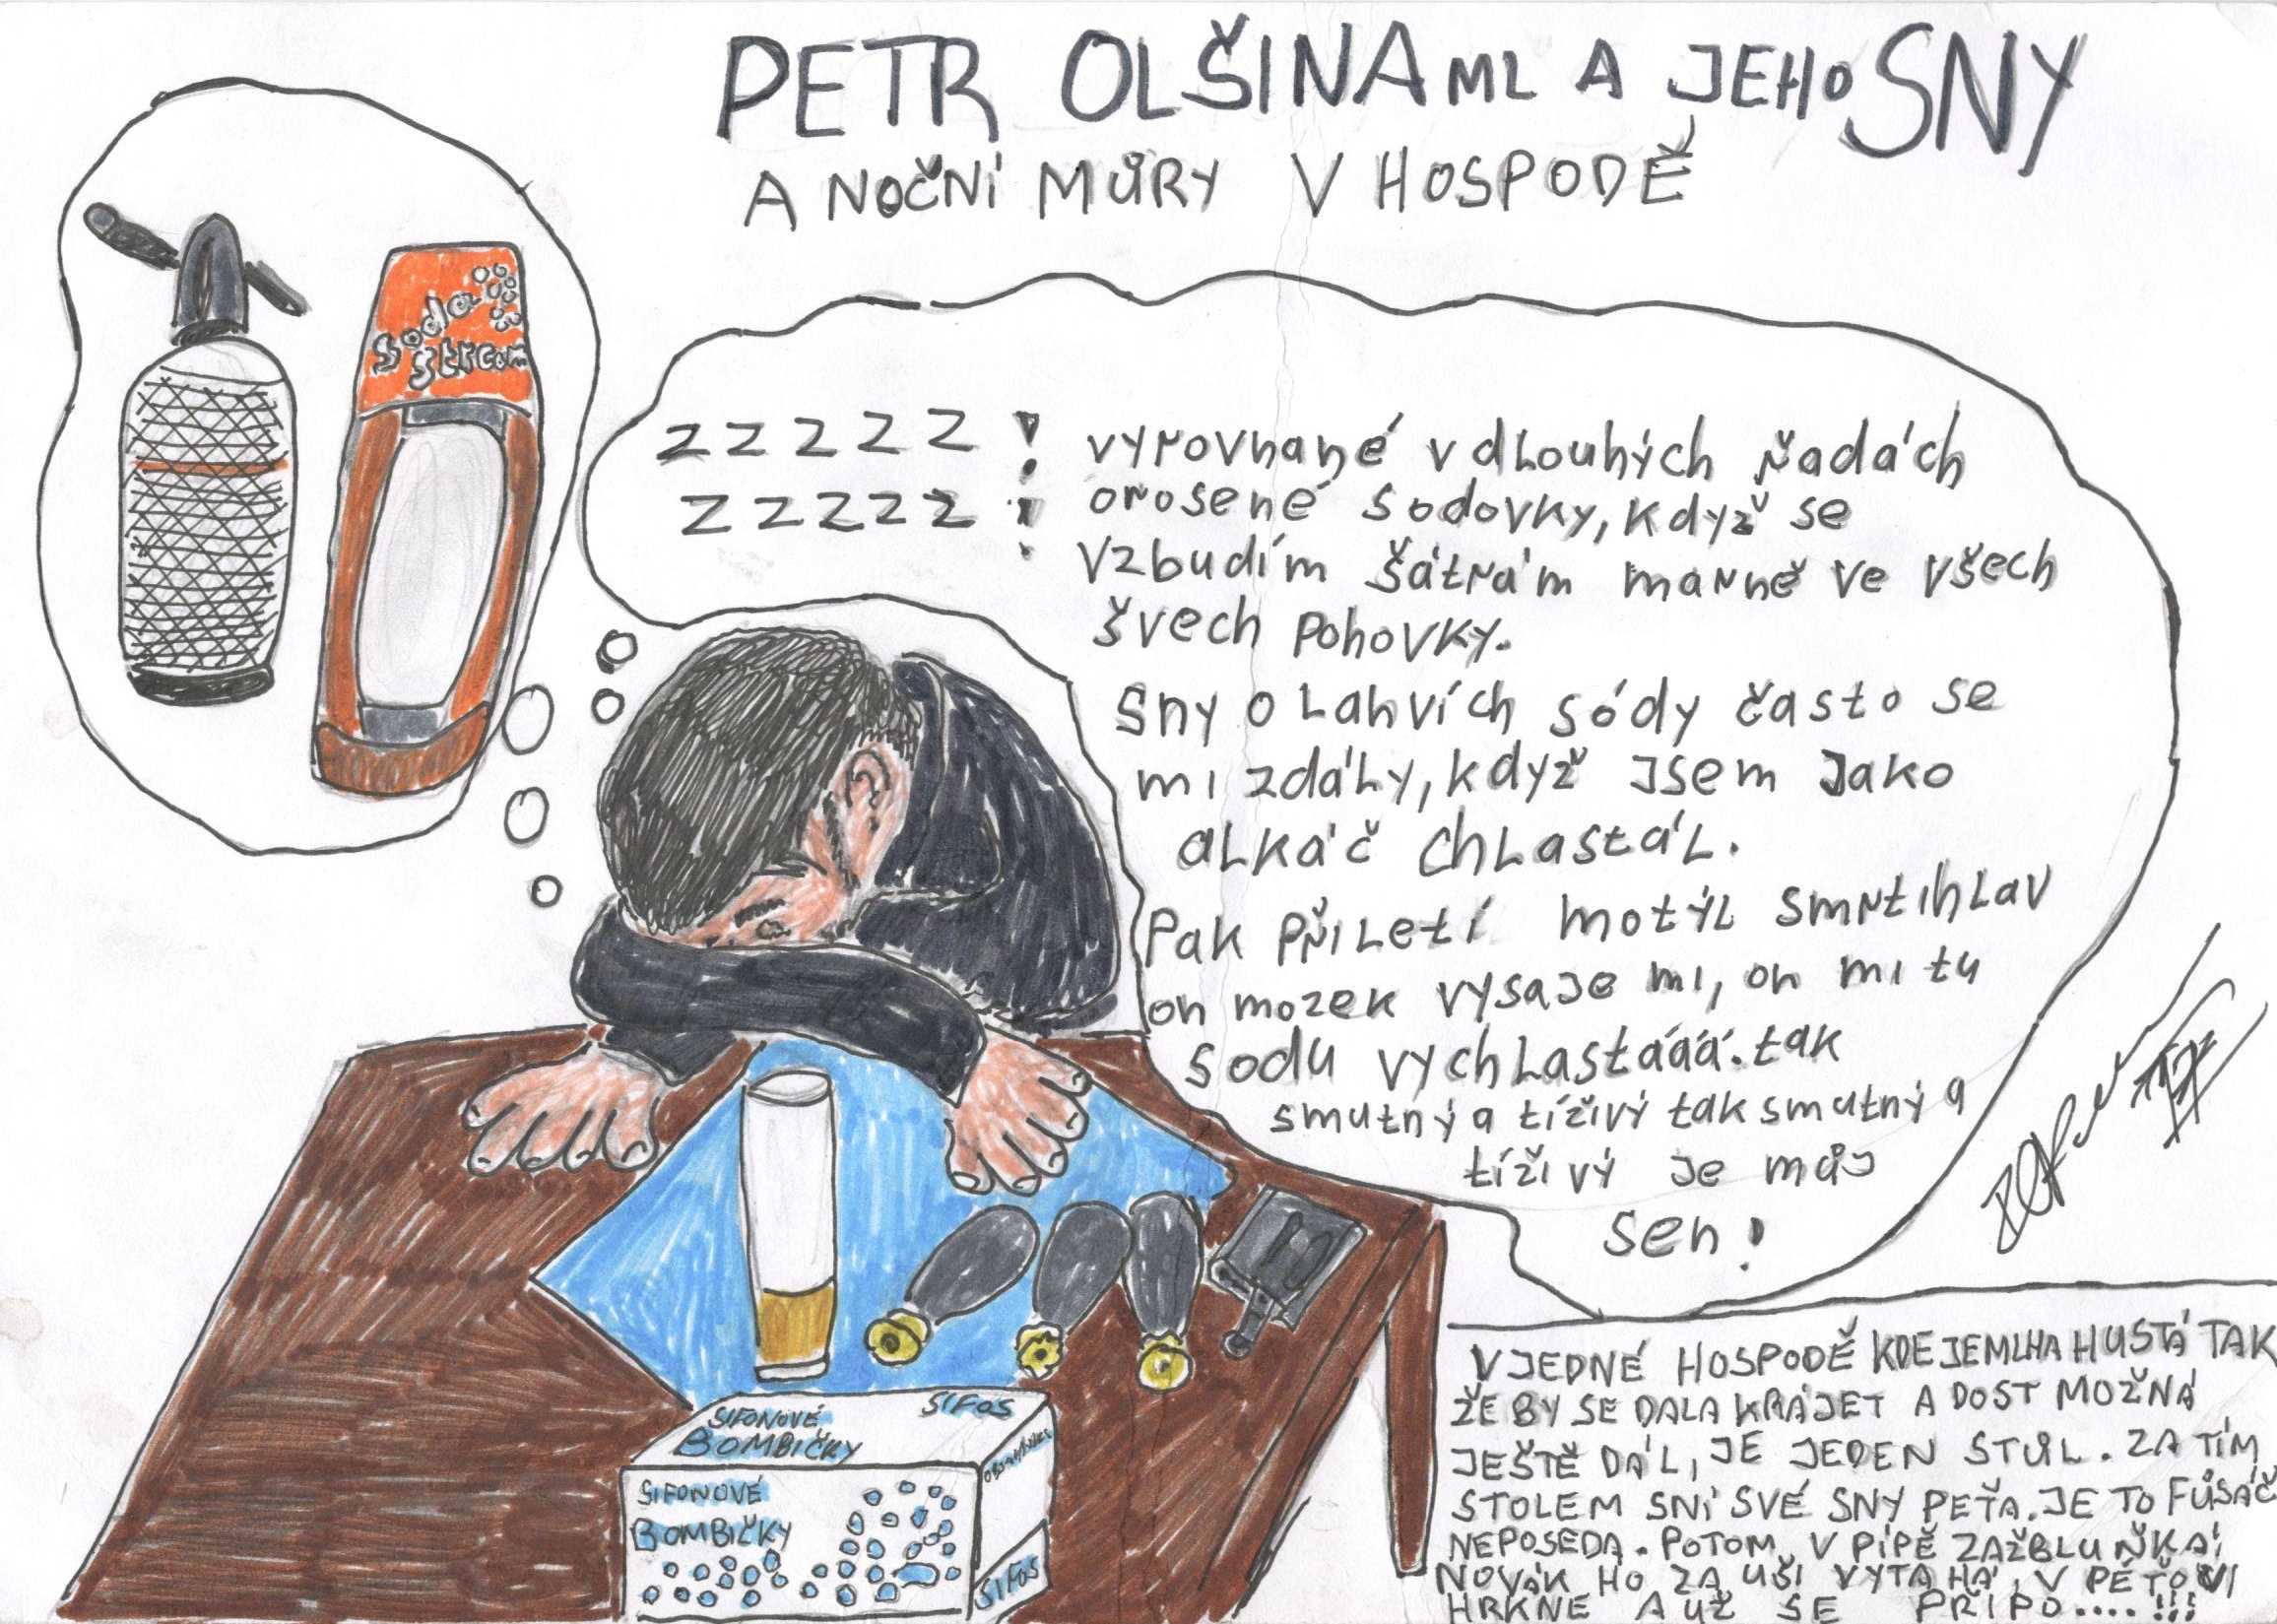 PETR OLŠINA ML A JEHO SNY
A NOČNÍ MŮRY V HOSPODĚ
soda
stream
ZZZZZ!
ZZZZZ!
vyrovnané v dlouhých řadách
orosené sodovky, když se
vzbudím šátrám marně ve všech
švech pohovky.
Sny o lahvích sódy často se
mi zdály, když jsem jako
alkáč chlastal.
Pak přiletí motýl smrtihlav
on mozek vysaje mi, on mi tu
sodu vychlastááá. tak
smutný a tíživý tak smutný a
tíživý je můj
sen!
SIFONOVÉ
BOMBIČKY
SIFOS
SIFONOVÉ
BOMBIČKY
SIFOS
V JEDNÉ HOSPODĚ KDE JE MLHA HUSTÁ TAK
ŽE BY SE DALA KRÁJET A DOST MOŽNÁ
JEŠTĚ DÁL, JE JEDEN STŮL. ZA TÍM
STOLEM SNÍ SVÉ SNY PEŤA. JE TO FŮSÁČ
NEPOSEDA. POTOM V PÍPĚ ZAŽBLUŇKÁ
NOVÁK HO ZA UŠI VYTAHÁ, V PÉŤOVI
HRKNE A UŽ SE PŘIPO....!!!